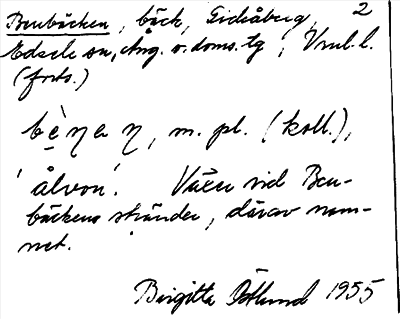 Benbäcken, bäck, Gideåberg, 2
Edsele sn, Ång. v. doms. tg, Vnrl. l.
(forts.)
bè̱ŋen, m. pl. (koll.),
'ålvon'. Växer vid Ben-
bäckens stränder, därav nam-
net.
Birgitta Östlund 1955